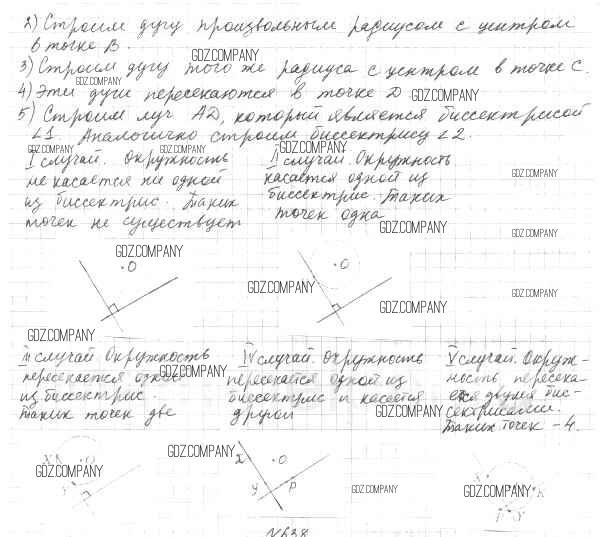 2) Строим дугу произвольным радиусом с центром
в точке B.
GDZ.COMPANY
3) Строим дугу того же радиуса с центром в точке C.
GDZ.COMPANY
4) Эти дуги пересекаются в точке D
GDZ.COMPANY
5) Строим луч AD, который является биссектрисой
∠1. Аналогично строим биссектрису ∠2.
GDZ.COMPANY
GDZ.COMPANY
GDZ.COMPANY
I случай. Окружность
не касается ни одной
из биссектрис. Таких
точек не существует
II случай. Окружность
касается одной из
биссектрис. Таких
точек одна
GDZ.COMPANY
GDZ.COMPANY
GDZ.COMPANY
GDZ.COMPANY
O
GDZ.COMPANY
O
GDZ.COMPANY
GDZ.COMPANY
GDZ.COMPANY
III случай. Окружность
пересекается одной
из биссектрис.
Таких точек две
GDZ.COMPANY
GDZ.COMPANY
IV случай. Окружность
пересекается одной из
биссектрис и касается
другой
GDZ.COMPANY
V случай. Окруж-
ность пересека-
ется двумя бис-
сектрисами.
Таких точек - 4.
GDZ.COMPANY
X
O
GDZ.COMPANY
X
O
Y
P
GDZ.COMPANY
GDZ.COMPANY
K
P
№638